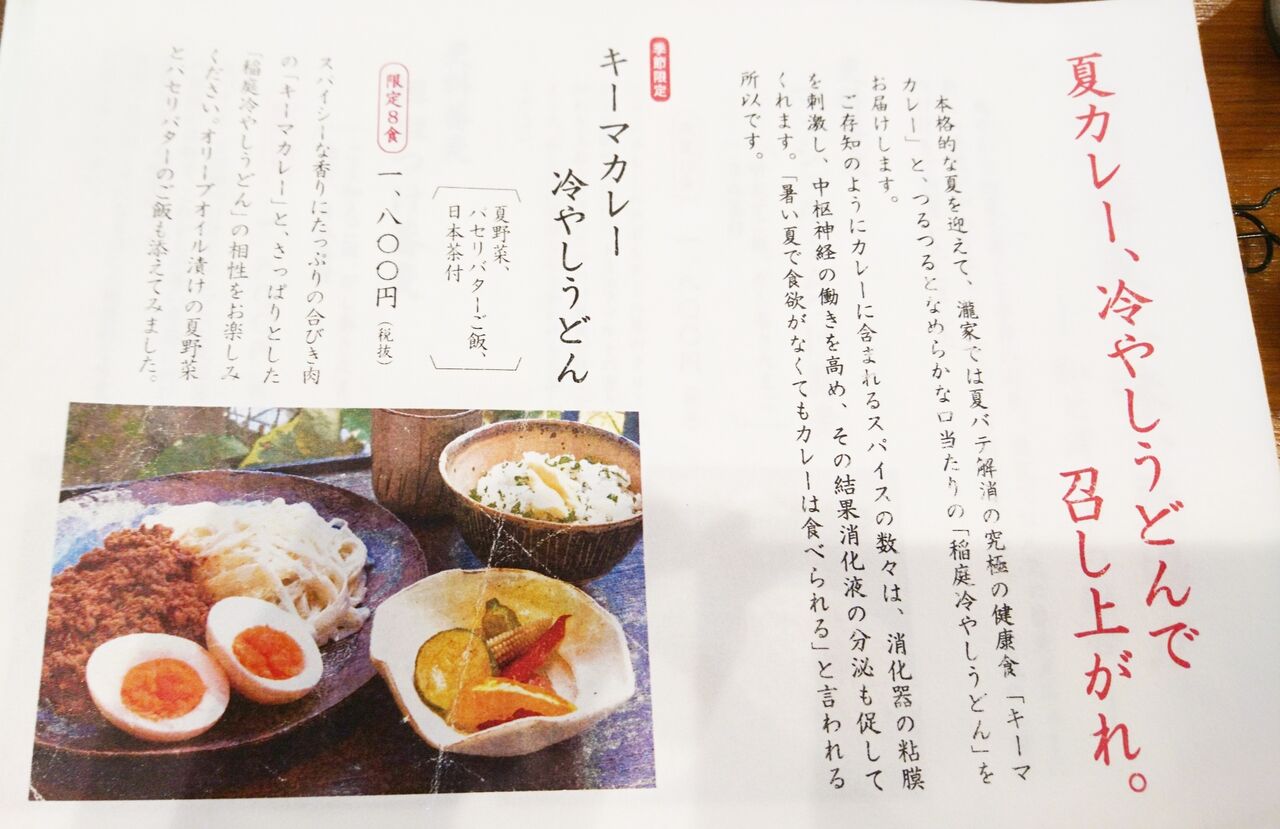 夏カレー、冷やしうどんで
召し上がれ。
本格的な夏を迎えて、瀧家では夏バテ解消の究極の健康食「キーマ
カレー」と、つるつるとなめらかな口当たりの「稲庭冷やしうどん」を
お届けします。
ご存知のようにカレーに含まれるスパイスの数々は、消化器の粘膜
を刺激し、中枢神経の働きを高め、その結果消化液の分泌も促して
くれます。「暑い夏で食欲がなくてもカレーは食べられる」と言われる
所以です。
季節限定
キーマカレー
冷やしうどん
夏野菜、
パセリバターご飯、
日本茶付
限定8食
一、八〇〇円（税抜）
スパイシーな香りにたっぷりの合びき肉
の「キーマカレー」と、さっぱりとした
「稲庭冷やしうどん」の相性をお楽しみ
ください。オリーブオイル漬けの夏野菜
とパセリバターのご飯も添えてみました。